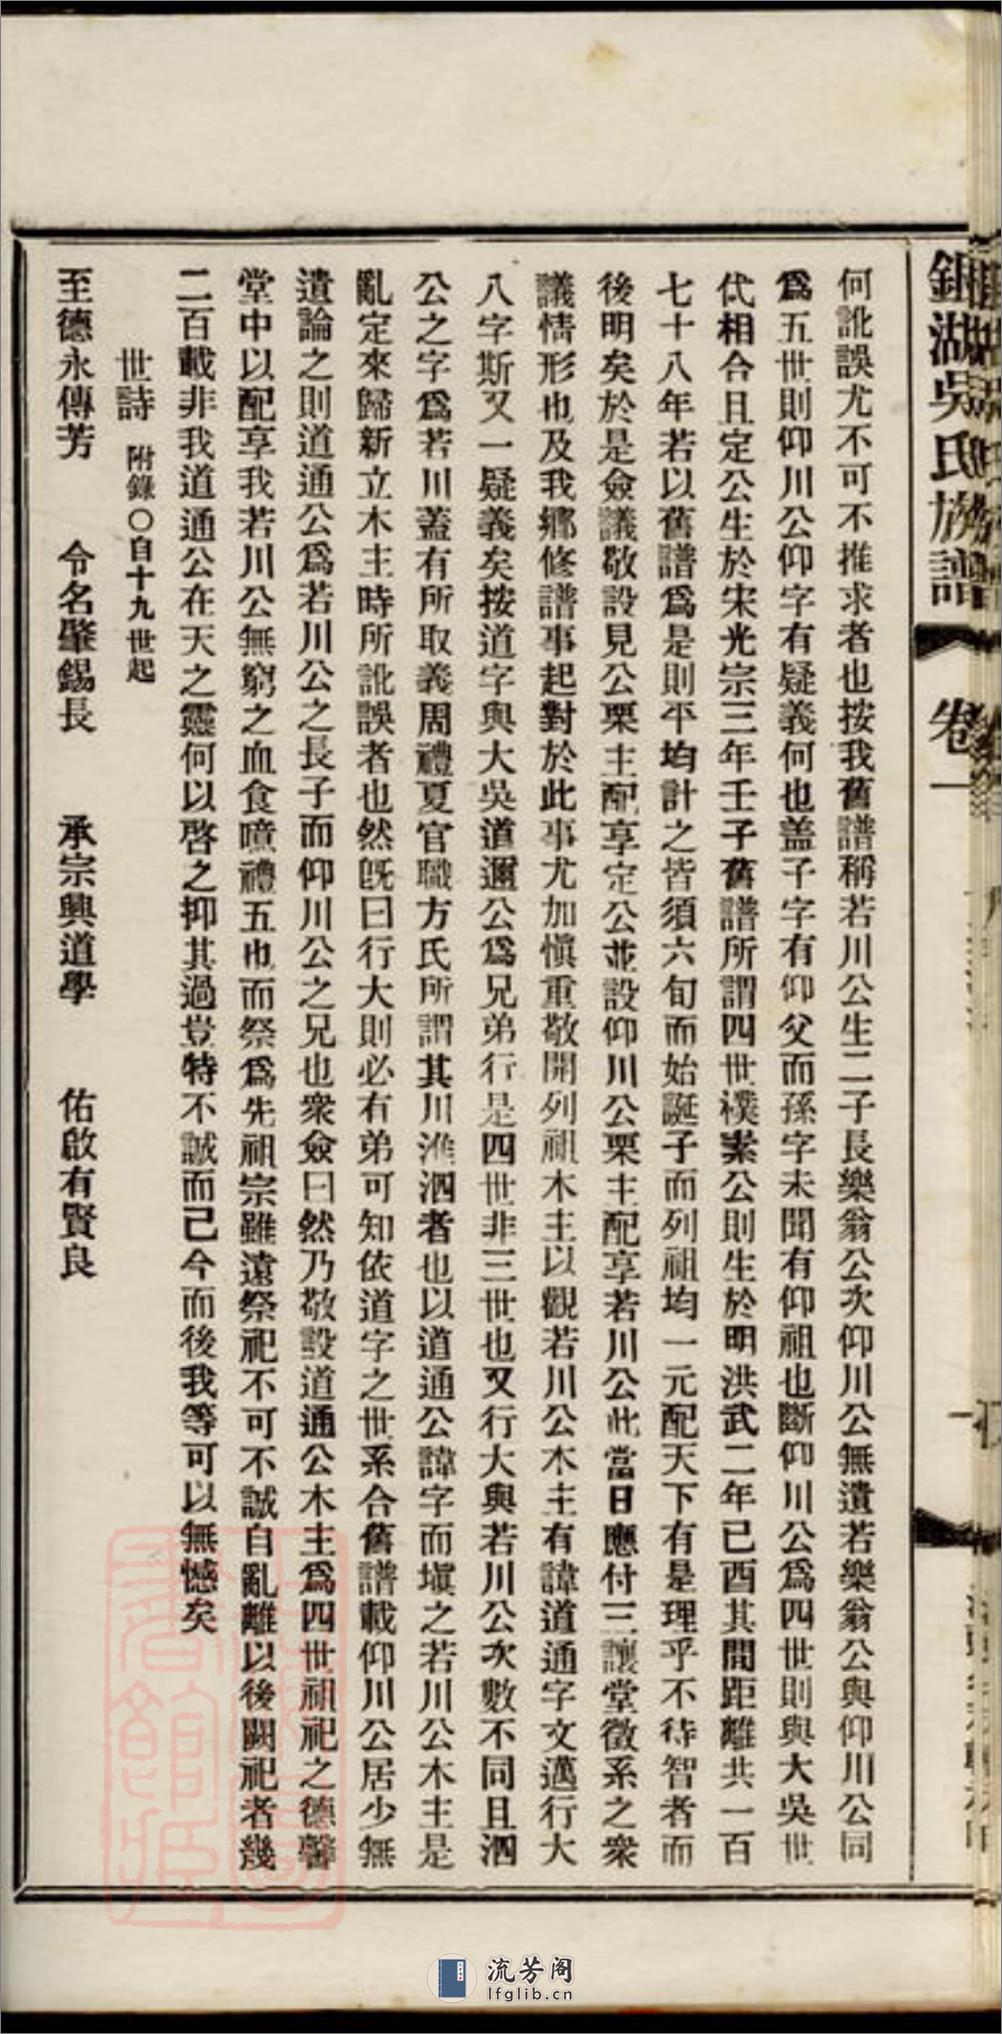 鈿湖吳氏族譜 卷一
何訛誤尤不可不推求者也按我舊譜稱若川公生二子長樂翁公次仰川公無遺若樂翁公與仰川公同
爲五世則仰川公仰字有疑義何也盖子字有仰父而孫字未聞有仰祖也斷仰川公爲四世則與大吳世
代相合且定公生於宋光宗三年壬子舊譜所謂四世樸素公則生於明洪武二年已酉其間距離共一百
七十八年若以舊譜爲是則平均計之皆須六旬而始誕子而列祖均一元配天下有是理乎不待智者而
後明矣於是僉議敬設見公栗主配享定公並設仰川公栗主配享若川公此當日應付三讓堂徵系之衆
議情形也及我鄉修譜事起對於此事尤加愼重敬開列祖木主以觀若川公木主有諱道通字文邁行大
八字斯又一疑義矣按道字與大吳道邇公爲兄弟行是四世非三世也又行大與若川公次數不同且泗
公之字爲若川蓋有所取義周禮夏官職方氏所謂其川淮泗者也以道通公諱字而塡之若川公木主是
亂定來歸新立木主時所訛誤者也然旣曰行大則必有弟可知依道字之世系合舊譜載仰川公居少無
遺論之則道通公爲若川公之長子而仰川公之兄也衆僉曰然乃敬設道通公木主爲四世祖祀之德馨
堂中以配享我若川公無窮之血食噫禮五也而祭爲先祖宗雖遠祭祀不可不誠自亂離以後闕祀者幾
二百載非我道通公在天之靈何以啓之抑其過豈特不誠而已今而後我等可以無憾矣
世詩 附錄○自十九世起
至德永傳芳 令名肇錫長 承宗興道學 佑啟有賢良
流芳阁
lfglib.cn